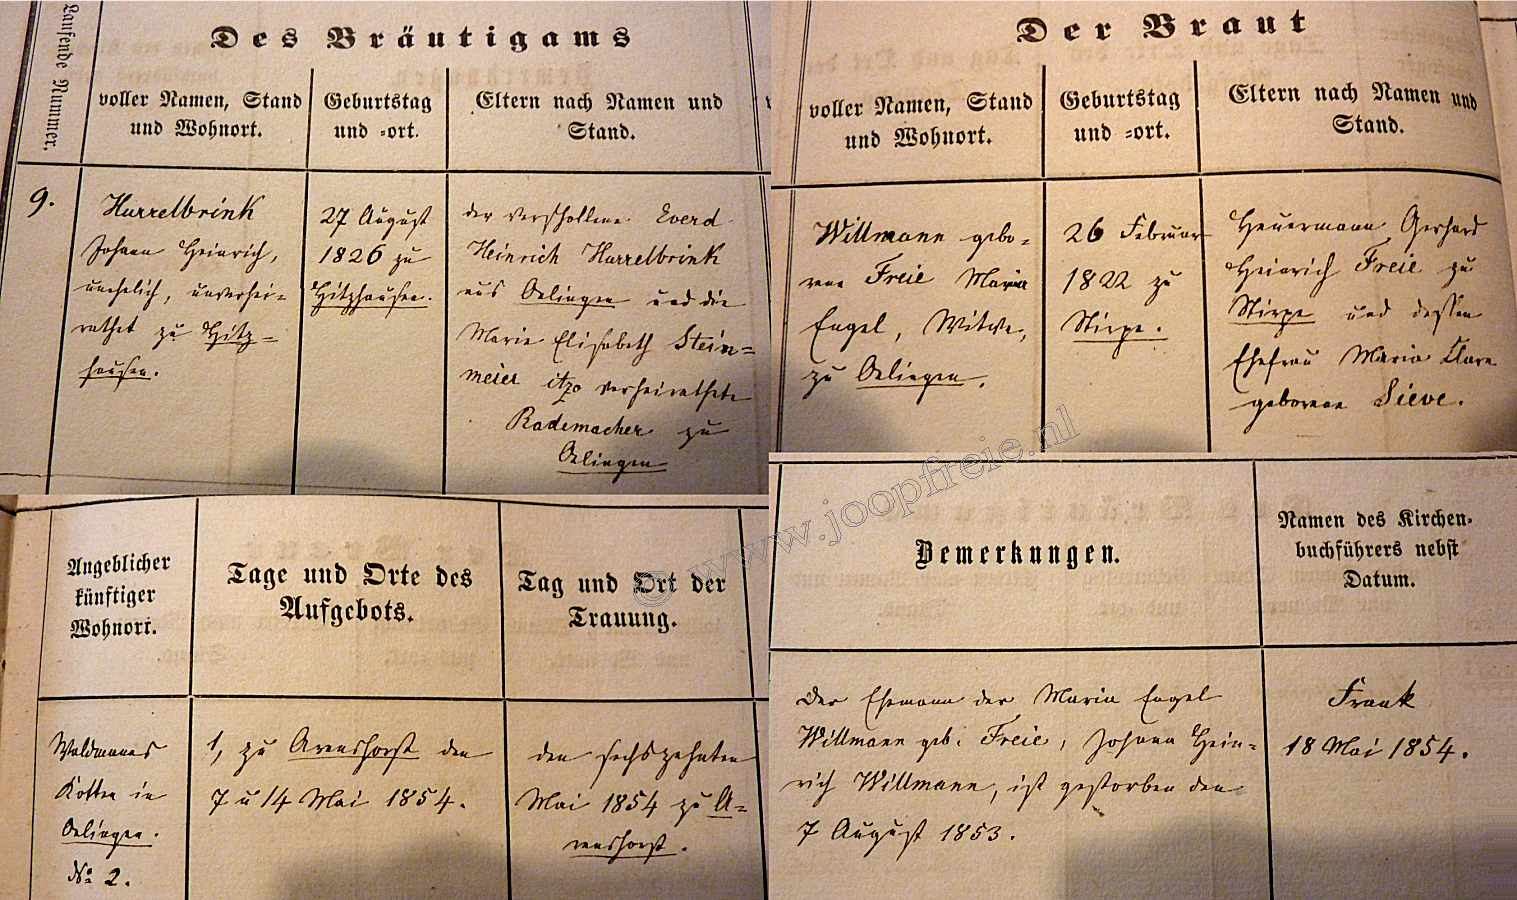 Laufende Nummer.
Des Bräutigams
voller Namen, Stand
und Wohnort.
Geburtstag
und =ort.
Eltern nach Namen und
Stand.
9.
Hurrelbrink
Johann Heinrich,
unehelich, unverhei=
rathet zu Hitz=
hausen.
27 August
1826 zu
Hitzhausen.
der verschollene Everd
Heinrich Hurrelbrink
aus Oelingen und die
Marie Elisabeth Stein=
meier itzo verheirathete
Rademacher zu
Oelingen
Der Braut
voller Namen, Stand
und Wohnort.
Geburtstag
und =ort.
Eltern nach Namen und
Stand.
Willmann gebo=
rene Freie Maria
Engel, Witwe,
zu Oelingen.
26 Februar
1822 zu
Stirpe.
Heuermann Gerhard
Heinrich Freie zu
Stirpe und dessen
Ehefrau Maria Clara
geborene Sieve.
Angeblicher
künftiger
Wohnort.
Tage und Orte des
Aufgebots.
Tag und Ort der
Trauung.
Waldmanns
Kotten in
Oelingen.
No 2.
1, zu Arenshorst den
7 u 14 Mai 1854.
den sechszehnten
Mai 1854 zu A=
renshorst.
Bemerkungen.
Namen des Kirchen=
buchführers nebst
Datum.
Der Ehemann der Maria Engel
Willmann geb. Freie, Johann Hein=
rich Willmann, ist gestorben den
7 August 1853.
Frank
18 Mai 1854.
© www.joopfreie.nl